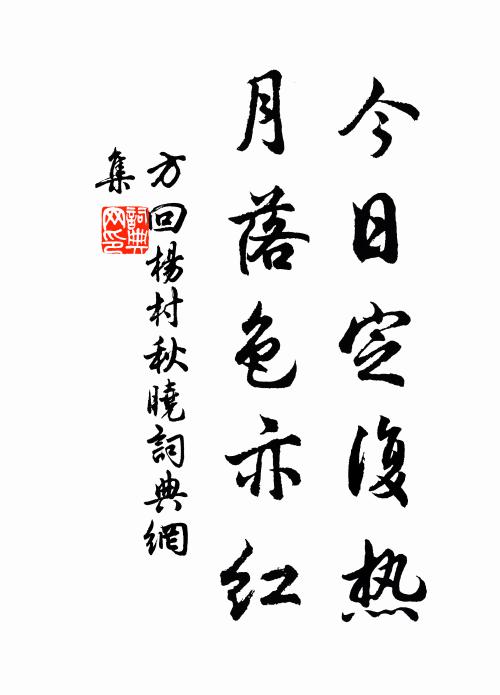 今日定復热
月落色亦红
方回楊村秋曉詞典網
集
詞典
网印